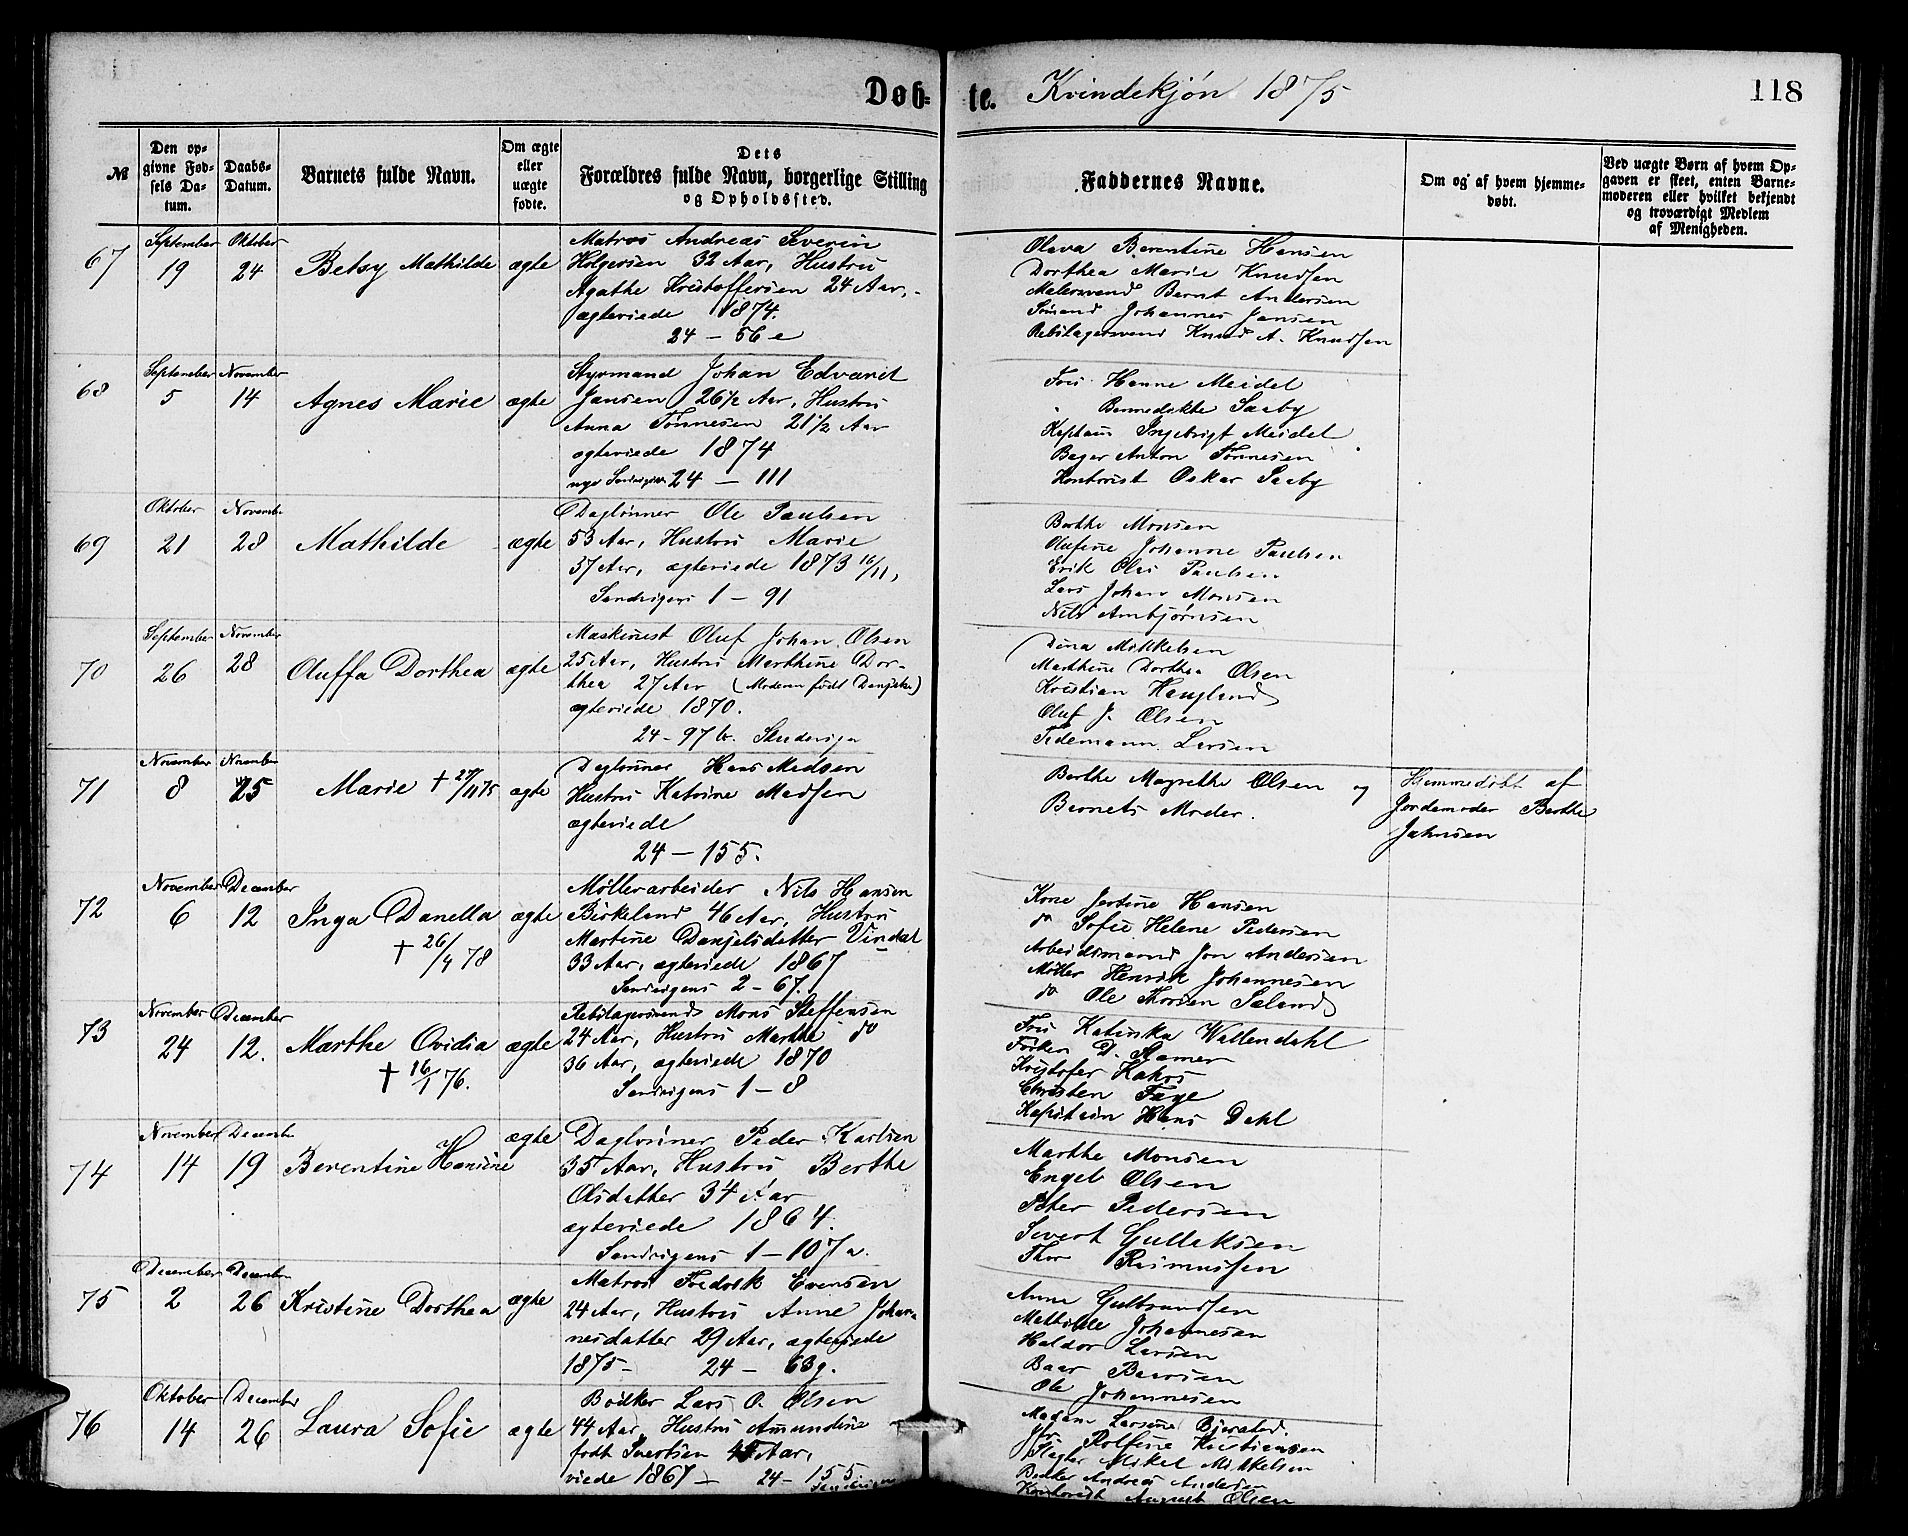 Døb-te. Kvindekjøn 1875
118
№
Den op-
givne Fød-
sels Da-
tum.
Daabs-
Datum.
Barnets fulde Navn.
Om ægte
eller
uægte
fødte.
Dets
Forældres fulde Navn, borgerlige Stilling
og Opholdssted.
Faddernes Navne.
Om og af hvem hjemme-
døbt.
Ved uægte Børn af hvem Op-
gaven er skeet, enten Barne-
moderen eller hvilket bekjendt
og troværdigt Medlem
af Menigheden.
67
September
19
Oktober
24
Betsy Mathilde
ægte
Matros Andreas Severin
Holgersen 32 Aar, Hustru
Agathe Kristoffersen 24 Aar,
ægteviede 1874.
24 – 56 e
Olava Berentine Hansen
Dorthea Marie Knudsen
Malersvend Bernt Andersen
Sømand Johannes Jansen
Rebslagersvend Knud A. Knudsen
68
September
5
November
14
Agnes Marie
ægte
Styrmand Johan Edvard
Jansen 26½ Aar, Hustru
Anna Tønnesen 21½ Aar
ægteviede 1874
24 – 111
Fru Hanne Meidel
Saaby
Ingebrigt Meidel
Bager Anton Tønnesen
Kontorist Oskar Saaby
69
Oktober
21
Novembr
28
Mathilde
ægte
Daglønner Ole Paulsen
53 Aar, Hustru Marie
37 Aar, ægteviede 1873 16/11,
Sandvigens 1 – 91
Berthe Monsen
Olufine Johanne Paulsen
Erik Olai Paulsen
Lars Johan Monsen
Nils Ambjørnsen
70
September
26
November
28
Oluffa Dorthea
ægte
Maskinist Oluf Johan Olsen
25 Aar, Hustru Marthine Dor-
thea 27 Aar (Moderen født Danjelsen)
ægteviede 1870.
24 – 97 b. Skudevigen
Dina Mikkelsen
Marthine Dorthea Olsen
Kristian Haugland
Oluf J. Olsen
Tidemann Larsen
71
November
8
November
25
Marie † 27/11 75
ægte
Daglønner Hans Madsen
Hustru Katrine Madsen
ægteviede
24 – 155.
Berthe Magrethe Olsen og
Barnets Moder.
Hjemmedøbt af
Jordemoder Berthe
Jahnsen
72
November
6
December
12
Inga Danella
† 26/4 78
ægte
Møllerarbeider Nils Hansen
Birkeland 46 Aar, Hustru
Martine Danjelsdatter Vindal
33 Aar, ægteviede 1867
Sandvigens 2 – 67.
Kone Jertine Hansen
do Sofie Helene Pedersen
Arbeidsmand Jon Andersen
Møller Henrik Johannesen
do Ole Thorsen Sæland
73
November
24
December
12.
Marthe Ovidia
† 16/1 76.
ægte
Rebslagersvend Mons Steffensen
24 Aar, Hustru Marthe do
36 Aar, ægteviede 1870
Sandvigens 1 – 8
Frk Katinka Wallendahl
D. Ramer
Kristofer
Christen Faye
Kaptein Hans Dahl
74
November
14
December
19
Berentine Hansine
ægte
Daglønner Peder Karlsen
35 Aar, Hustru Berthe
Olsdatter 34 Aar
ægteviede 1864.
Sandvigens 1 – 107 a.
Marthe Monsen
Engel Olsen
Peter Pedersen
Sivert Gullaksen
Thor Rasmussen
75
December
2
December
26
Kristine Dorthea
ægte
Matros Fredrik Evensen
24 Aar, Hustru Anne Johan-
nesdatter 29 Aar, ægteviede
1875 – 24 – 63 g.
Anna Gulbrandsen
Mathilde Johannesen
Haldor Larsen
Baar Baarsen
Ole Johannesen
76
Oktober
14
December
26
Laura Sofie
ægte
Bødker Lars O. Olsen
44 Aar, Hustru Amundine
født Ivertsen Aar,
viede 1867 – 24 – 155
Madam Larsine
Jfr Rolfine Kristiansen
Slagter Mikel Mikkelsen
Bødker Andreas Andersen
Kontorist August Olsen